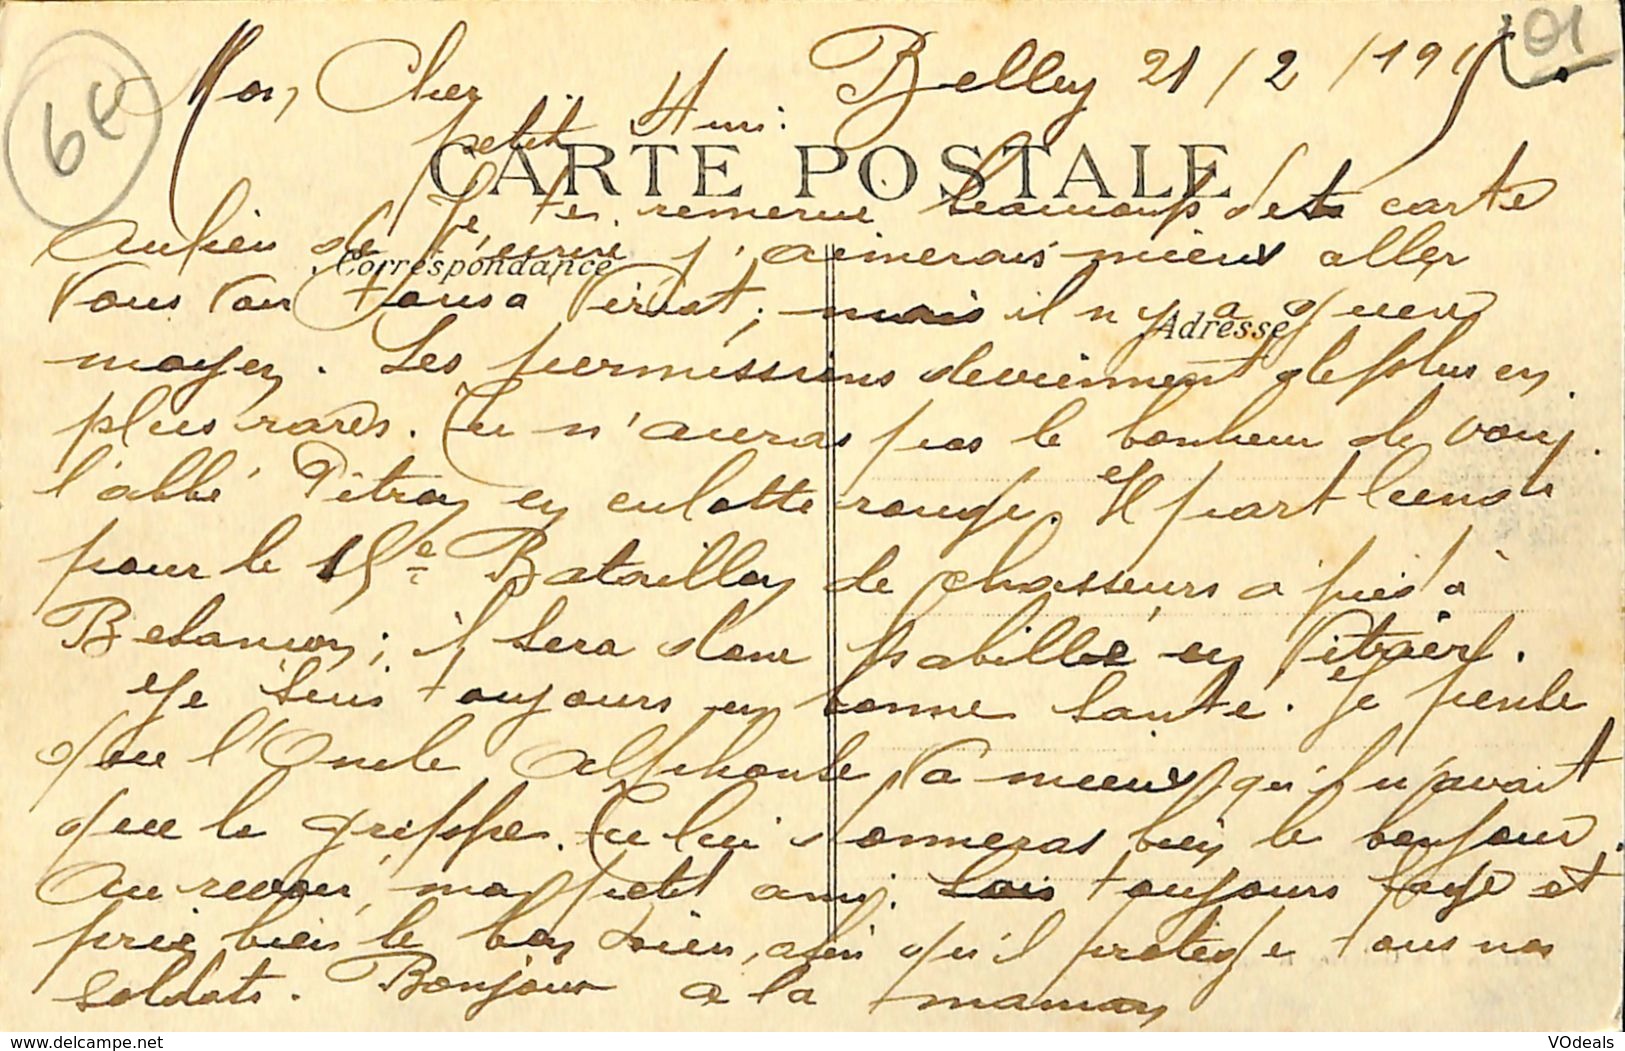 64
01
Belley 21/2/1915
Mon Cher
petit Ami:
CARTE POSTALE
Je te remercie beaucoup de ta carte
Correspondance
Adresse
au lieu de t'écrire j'aimerais mieux aller
vous voir tous à Viriat; mais il n'y a guère
moyen. Les permissions deviennent de plus en
plus rares. Tu n'auras pas le bonheur de voir
l'abbé Pitroy en culotte rouge. Il part lundi
pour le 15e Bataillon de chasseurs à pied à
Besançon; il sera donc habillé en Vitrier.
Je suis toujours en bonne santé. Je pense
que l'Oncle Alphonse va mieux, qu'il n'avait
que la grippe. Tu lui donneras bien le bonjour.
Au revoir, mon petit ami. Sois toujours sage et
prie bien le bon Dieu, afin qu'il protège tous nos
soldats. Bonjour à la maman
www.delcampe.net
VOdeals